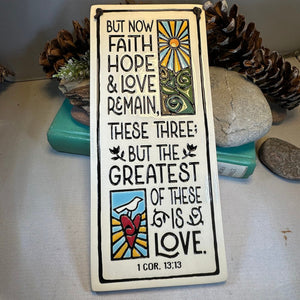 BUT NOW
FAITH
HOPE
& LOVE
REMAIN,
THESE THREE;
BUT THE
GREATEST
OF THESE
IS
LOVE.
1 COR. 13:13